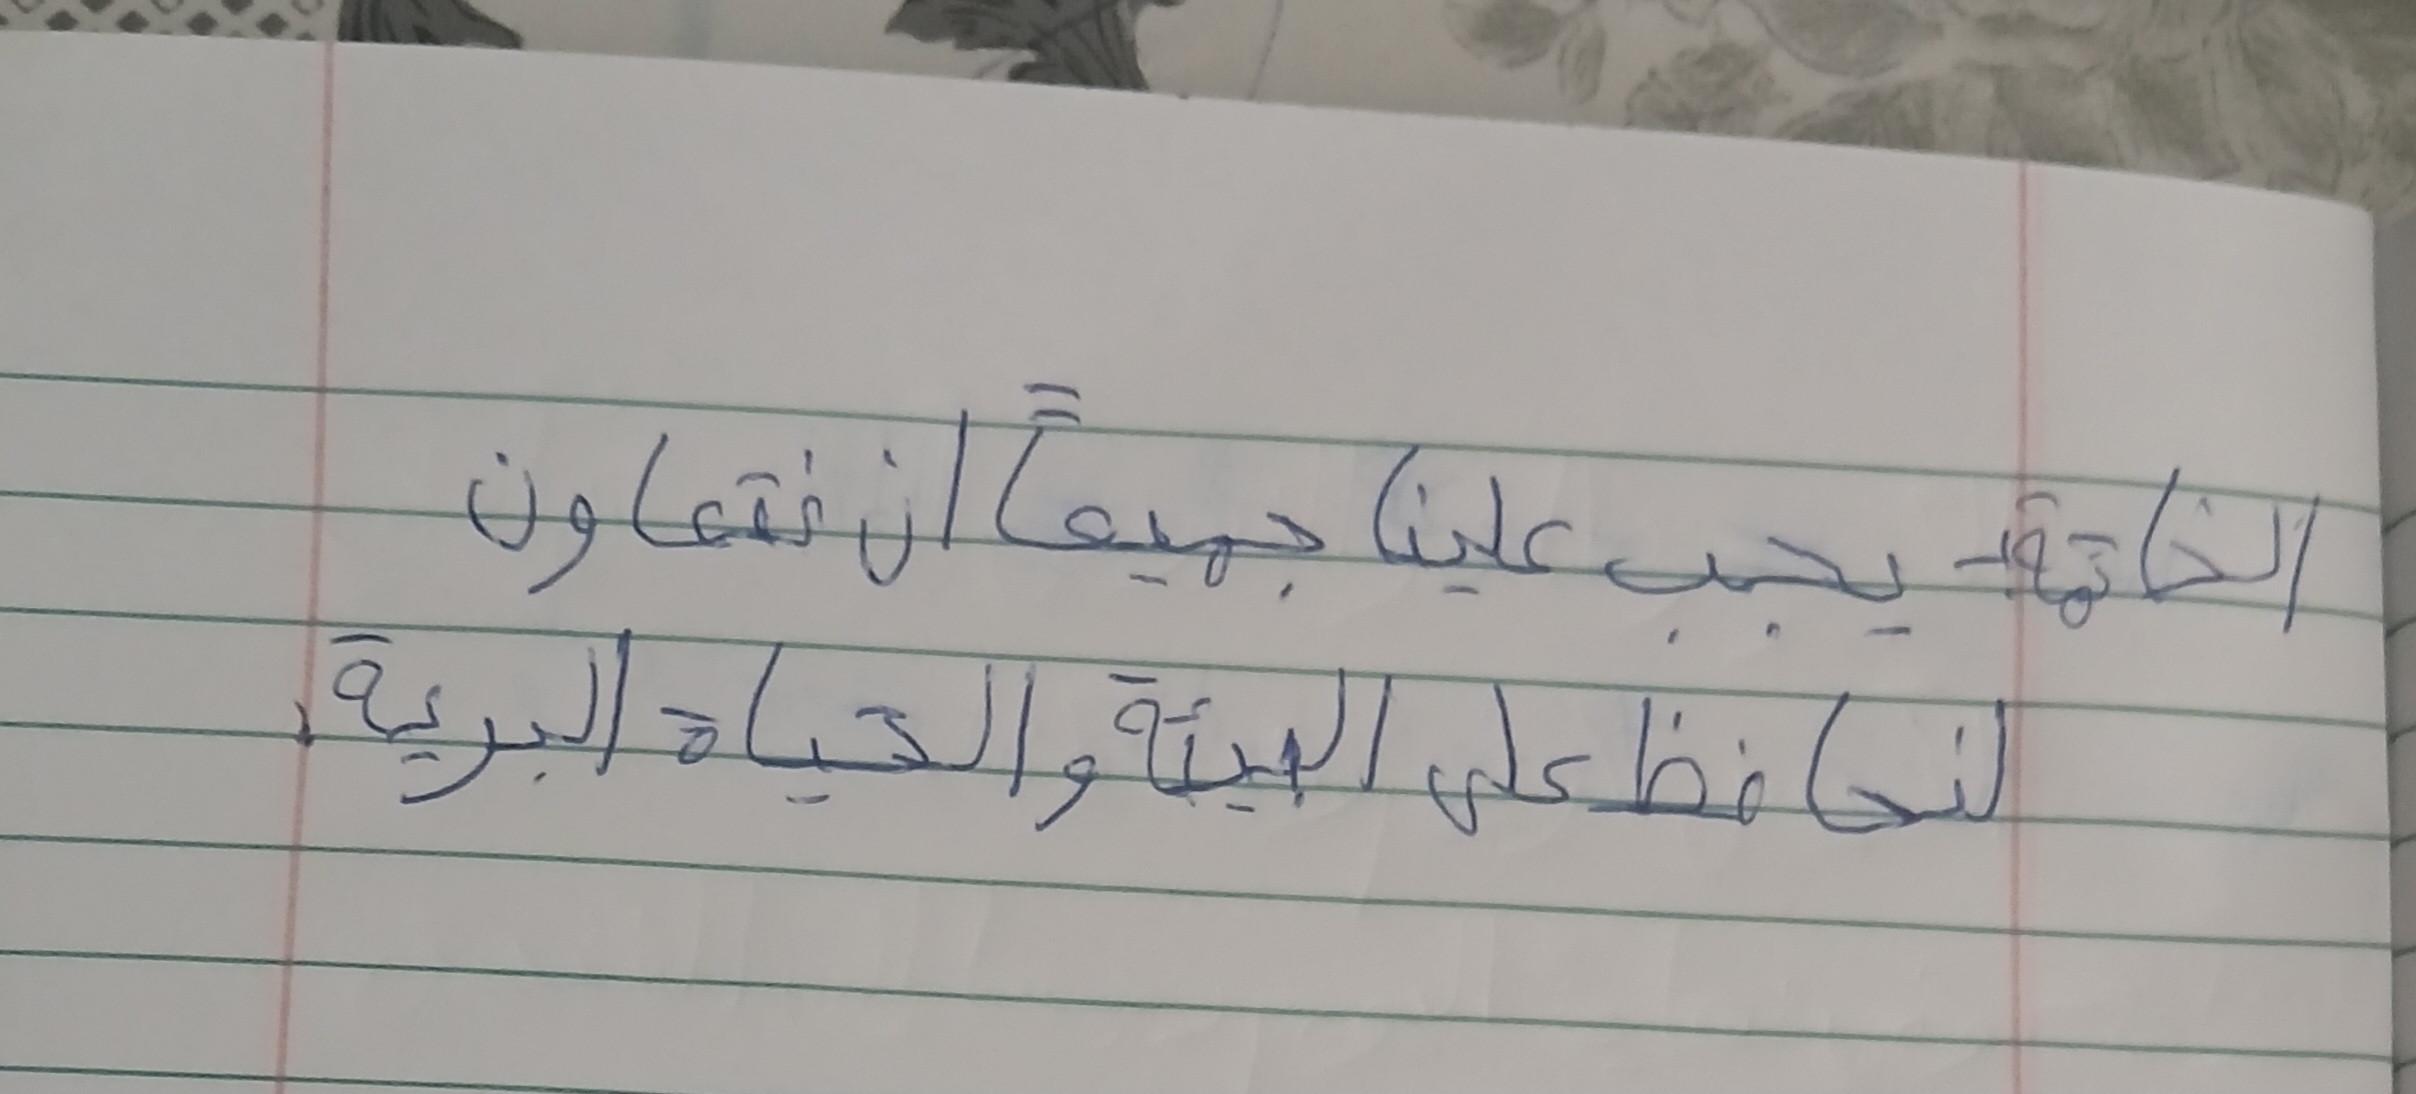 الخاتمة- يجب علينا جميعاً ان نتعاون
لنحافظ على البيئة والحياة البرية.